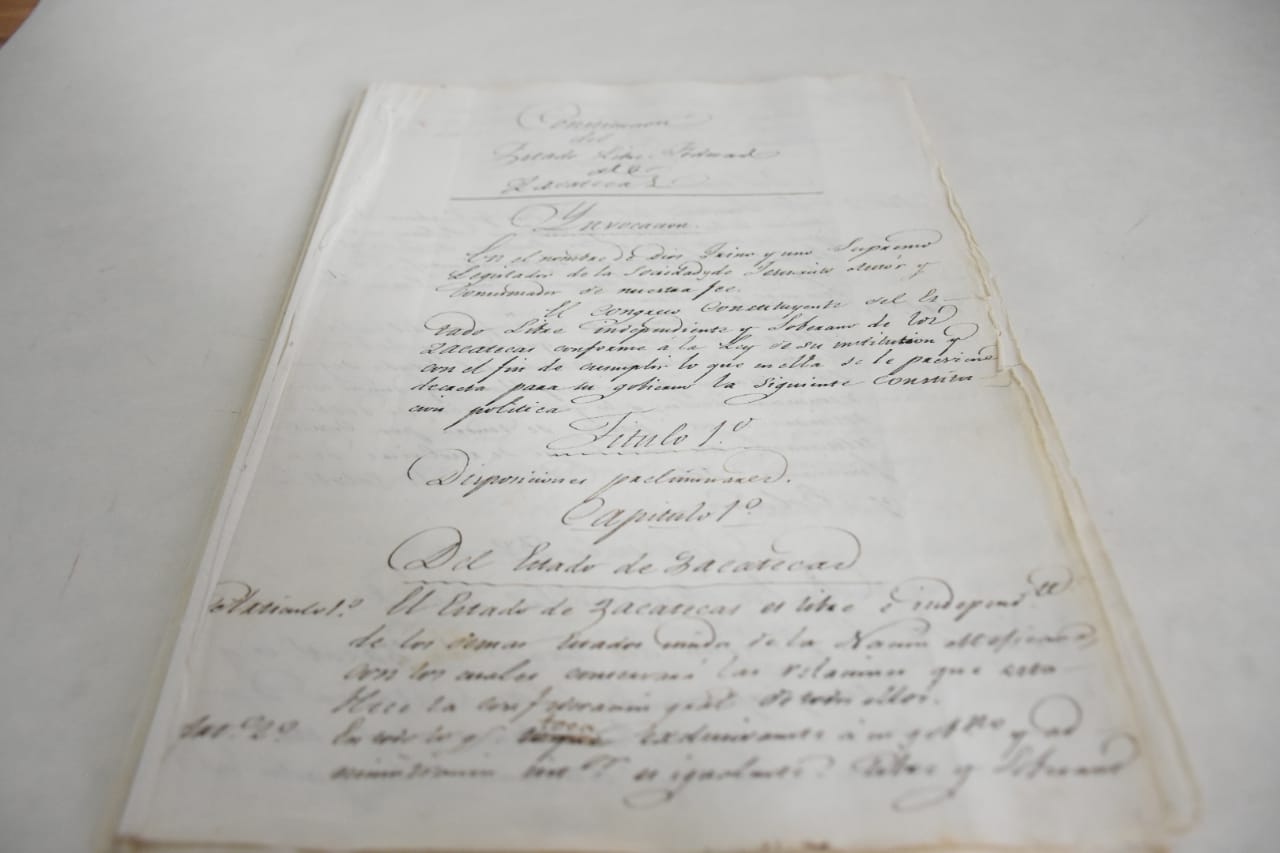 Constitucion
del
Estado Libre Federado
de
Zacatecas
Ynvocacion.
En el nombre de Dios Trino y uno Supremo
Legislador de la Sociedad y de Jesucristo Autór y
Consumador de nuestra fee.
El Congreso Constituyente del Es-
tado Libre independiente y Soberano de los
Zacatecas conforme á la Ley de su institution y
con el fin de cumplir lo que en ella se le previene
decreta para su gobierno la siguiente Constitu
cion politica
Titulo 1.º
Disposiciones preliminares.
Capitulo 1º
Del Estado de Zacatecas
Articulo 1.º El Estado de Zacatecas es libre é independte
de los demas Estados unidos de la Nacion Mexicana,
con los cuales conservará las relaciones que esta-
blece la confederacion gral de todos ellos.
Art.º 2º En todo lo q. toca exclusivamte á su gobno y ad
ministracion intr. es igualmte Libre y Soberano